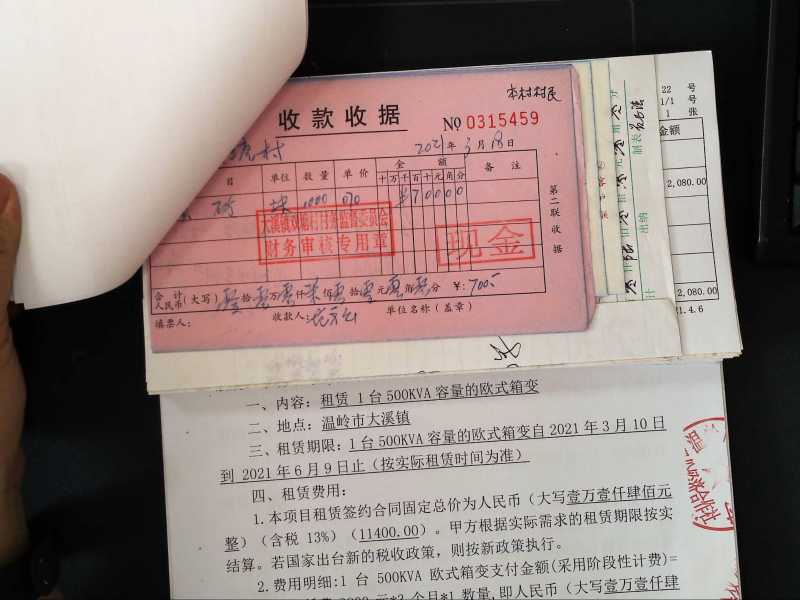 本村村民
收款收据
№ 0315459
村 2021年3月18日
目 单位 数量 单价 金额 备注
十万千百十元角分
砖 块 1000 070 ¥70000
大溪镇 村村务监督委员会
财务审核专用章
现金
第二联 收据
合计
人民币(大写) 零拾零万零仟柒佰零拾零元零角零分 ¥:700
填票人: 收款人: 单位名称(盖章)
22 号
1/1 号
1 张
金额
2,080.00
2,080.00
21.4.6
制表
出纳
一、内容:租赁 1 台 500KVA 容量的欧式箱变
二、地点:温岭市大溪镇
三、租赁期限:1 台 500KVA 容量的欧式箱变自 2021 年 3 月 10 日
到 2021 年 6 月 9 日止(按实际租赁时间为准)
四、租赁费用:
1.本项目租赁签约合同固定总价为人民币(大写壹万壹仟肆佰元
整)(含税 13%)(11400.00)。甲方根据实际需求的租赁期限按实
结算。若国家出台新的税收政策,则按新政策执行。
2.费用明细:1 台 500KVA 欧式箱变支付金额(采用阶段性计费)=
3800 元*3 个月*1 数量,即人民币(大写壹万壹仟肆